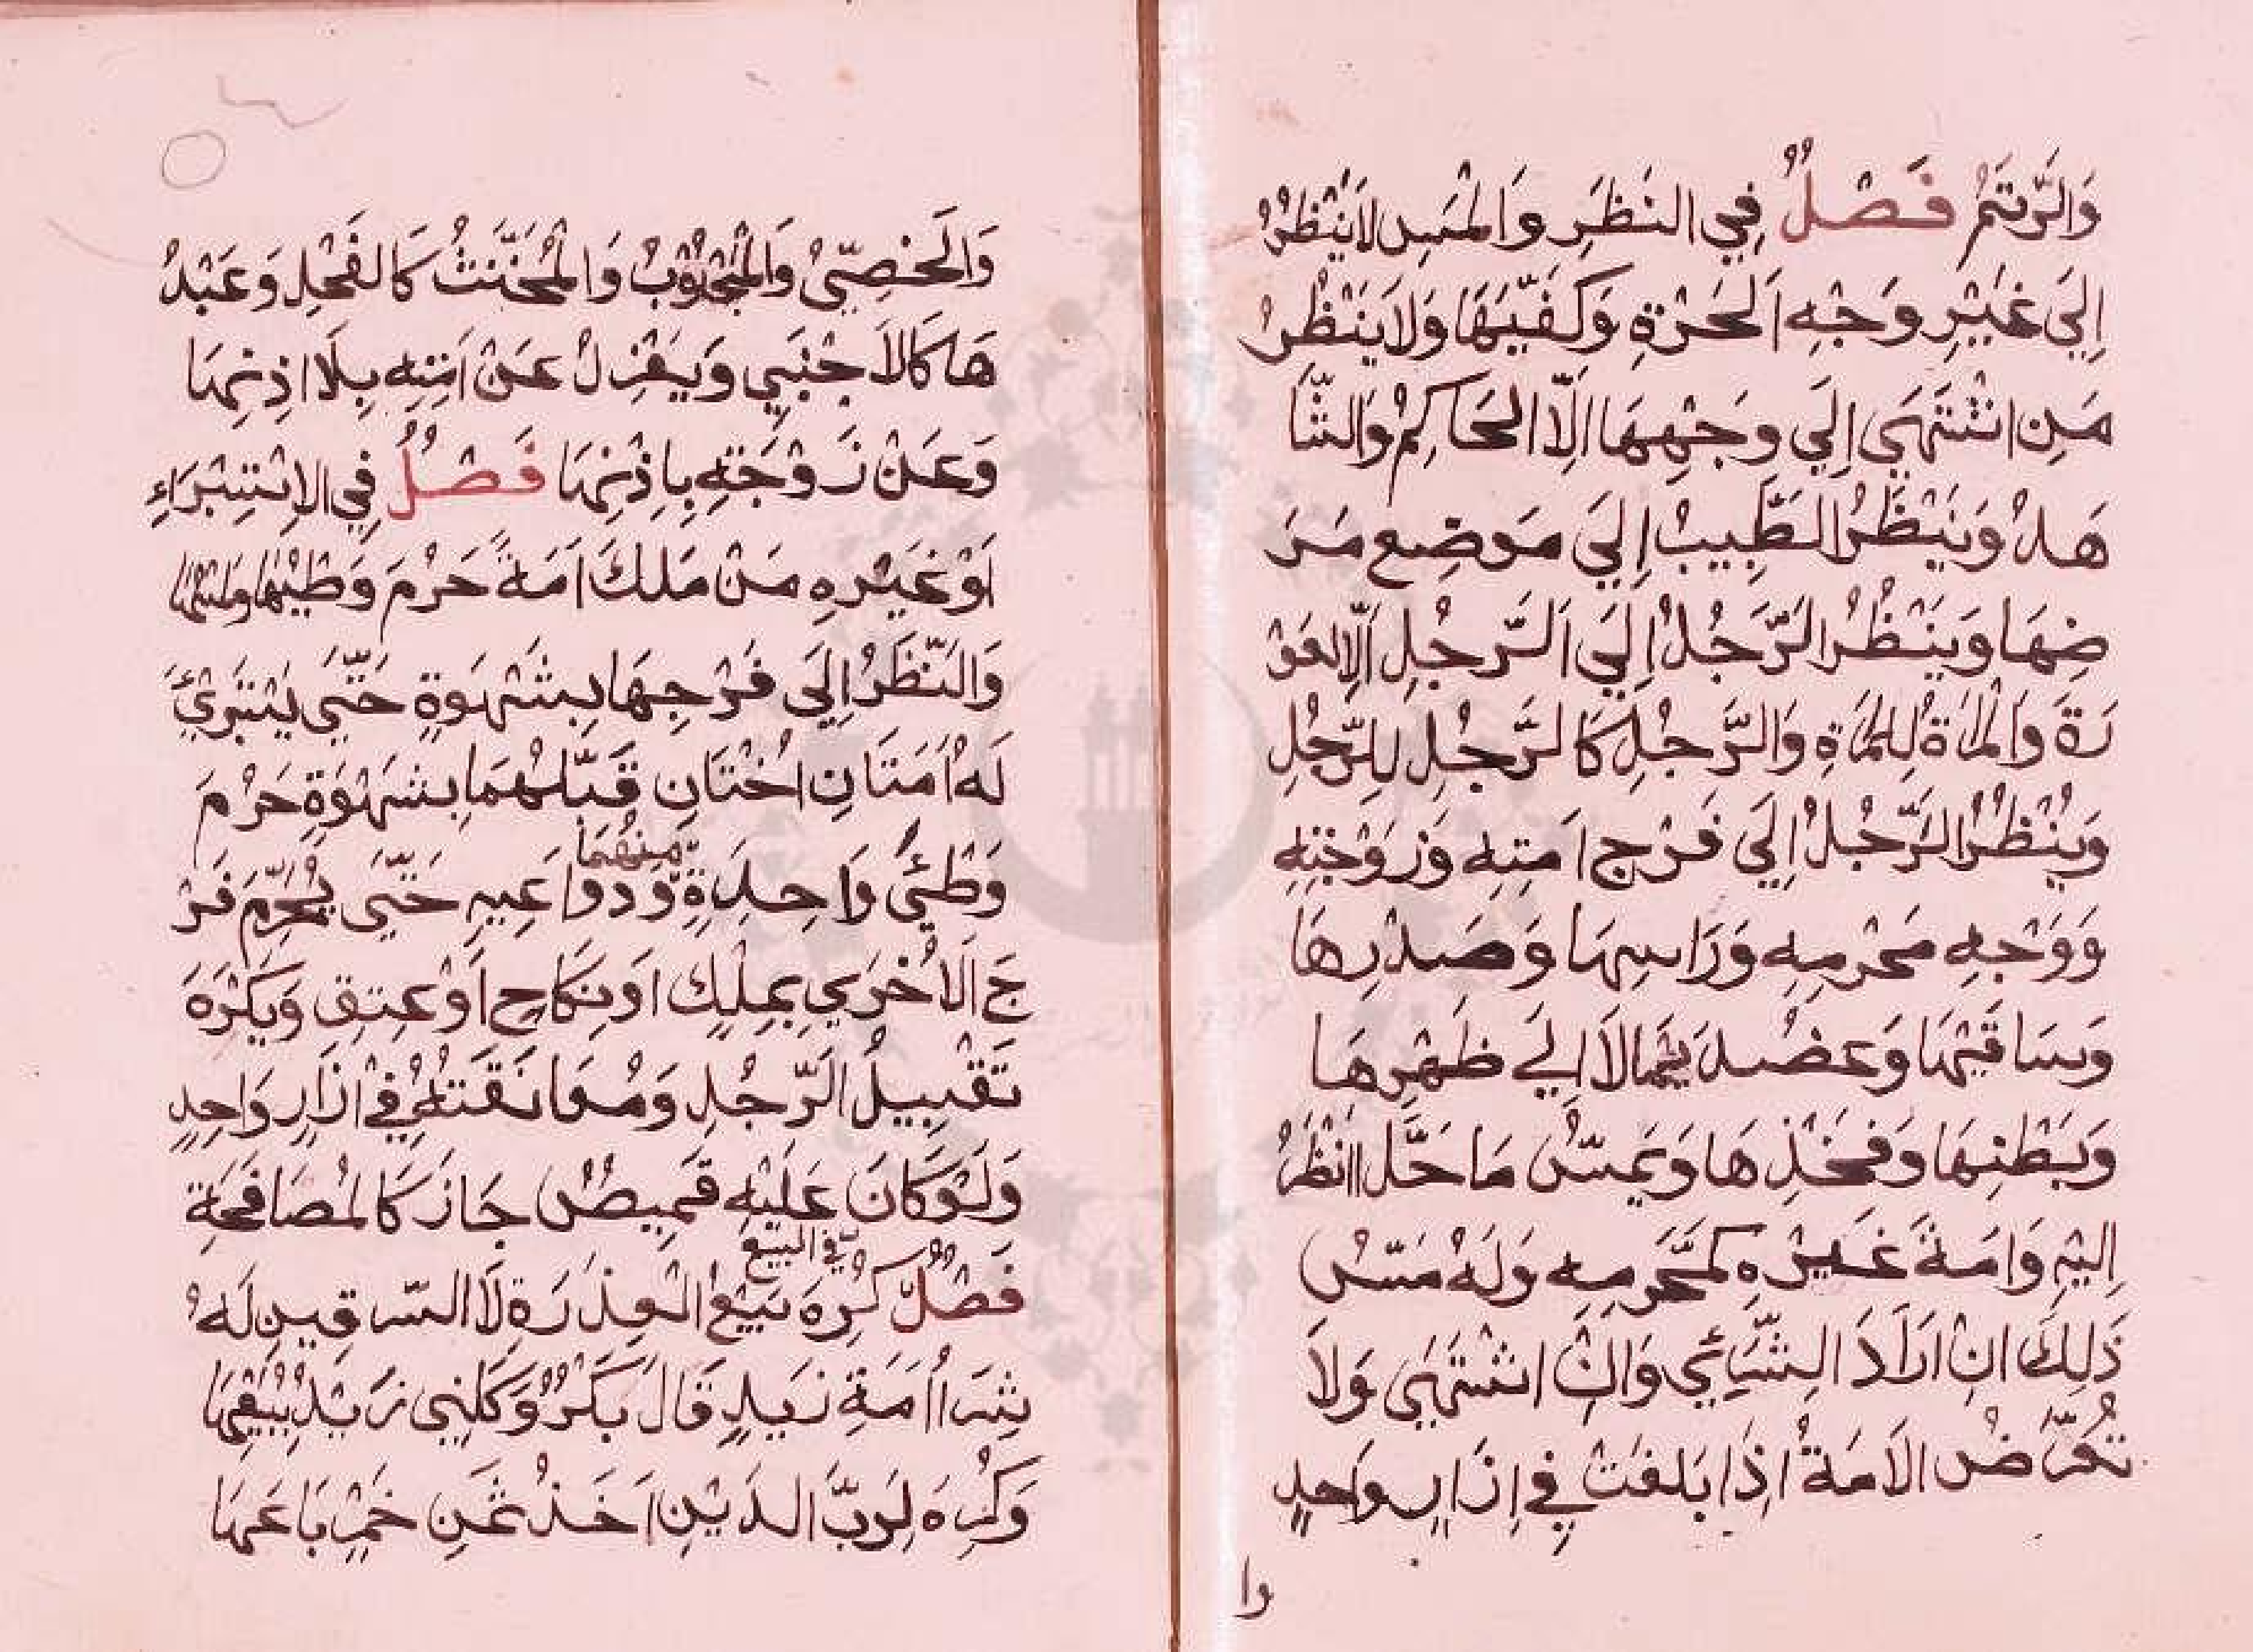 وَالرَّتَمُ فَصْلٌ فِي النَظَرِ وَالْمَسِ لَا يَنْظُرُ
اِلَيَ غَيْرِ وَجْهِ الْحُرَّةِ وَكَفَّيْهَا وَلَا يَنْظُرُ
مَنِ اشْتَهَي اِلَي وَجْهِهَا اِلَّا الحَاكِمُ وَالشَّا
هَدُ وَيَنْظَرُ الطَّبِيبُ اِلَيَ مَوضِع مَرَ
ضِهَا وَيَنْظُرُ الرَّجُلُ اِلَيَ الرَّجُلِ اَلَّا لعَوْ
رَةَ وَالْمَراةُ لِلمَراةِ وَالرَّجُلِ كَالرَّجُلِ لِلرَّجُلِ
وَيَنْظُرُ الرَّجُلُ اِلَي فَرْجِ اَمَتِهِ وَزَوْجَتِهِ
وَوَجْهِ مَحْرَمِهِ وَرَاسِهَا وَصَدْرِهَا
وَسَاقَيْهَا وَعضُدَيهَا لَا اِلَي ظَهْرِهَا
وَبَطْنِهَا وَفخَذِهَا وَيَمَسُّ مَا حَلَّ النَظَرُ
اِلَيْهِ وَامَةَ غَيْرِهِ كَمَحْرَمِهِ وَلَهُ مَسُّ
ذَلِكَ اِنْ اَرَادَ الشَّرَاءي وَاِنِ اشْتَهَي وَلَا
تُعْرَضُ الاَمَةُ اِذَا بَلَغَتْ فِي اِزَارٍ وَاحِدٍ
وا
وَالخَصِيُّ وَالْمَجْبُوْبُ وَالْمُخَنَّثُ كَالفَحْلِ وَعَبْدُ
هَا كَالاَجْنَبِي وَيَعْزِلُ عَنْ اَمَتِهِ بِلَا اِذنِهَا
وَعَنْ زَوْجَتِهِ بِاِذْنِهَا فَصْلٌ فِي الاِسْتِبْرَاءِ
اَوْ غَيْرِهِ مَنْ مَلَكَ اَمَةً حَرُمَ وَطْيُهَا وَلمْسُهَا
وَالنَّظَرُ اِلَى فَرْجِهَا بِشَهْوَةٍ حَتَّي يَسْتَبْرِيَ
لَهُ اَمَتَانِ اُخْتَانِ قَبَّلَهُمَا بِشَهْوَةٍ حَرُمَ
وَطْئُ وَاحِدَةٍ مِنْهُمَا وَدوَاعِيهِ حَتَّي يُحَرِّمَ فَرْ
جَ الاُخْرَي بِمِلْكٍ اَو نِكَاحٍ اَوْ عِتقٍ وَيَكْرَهَ
تَقْبِيلُ الرَّجُلِ وَمُعَانَقَتُهُ فِي اِزَارٍ وَاحِدٍ
وَلَوْ كَانَ عَلَيْهِ قَمِيصٌ جَازَ كَالْمُصَافَحَةِ
فِي البَيْع
فَصْلٌ كُرِهَ بَيْعُ الْعِذَرَةِ لَا السّرقِينِ لَهُ
شِرَاا اَمَةِ زَيدٍ قَالَ بَكْرٌ وَكَلَنِي زَيْدٌ بِبَيْعِهَا
وَكُرِهَ لِرَبِّ الدَيْنِ اَخْذُ ثَمَنِ خَمْرٍ بَاعَهَا